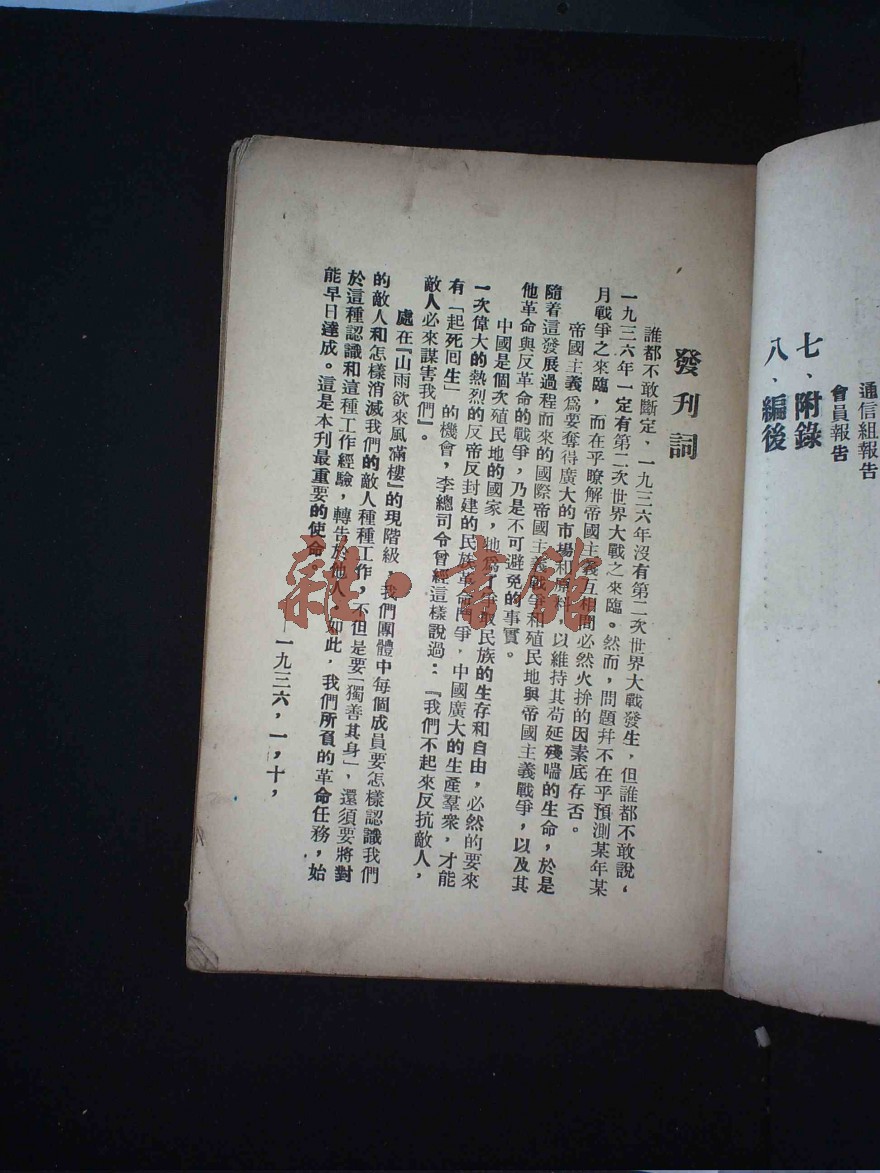 通信組報告
會員報告
七、附錄
八、編後
發刊詞
誰都不敢斷定，一九三六年沒有第二次世界大戰發生，但誰都不敢說，
一九三六年一定有第二次世界大戰之來臨。然而，問題幷不在乎預測某年某
月戰爭之來臨，而在乎瞭解帝國主義互相間必然火拚的因素底存否。
帝國主義爲要奪得廣大的市場和原料，以維持其苟延殘喘的生命，於是
隨着這發展過程而來的國際帝國主義戰爭和殖民地與帝國主義戰爭，以及其
他革命與反革命的戰爭，乃是不可避免的事實。
中國是個次殖民地的國家，她爲了爭取民族的生存和自由，必然的要來
一次偉大的熱烈的反帝反封建的民族革命鬥爭，中國廣大的生產羣衆，才能
有「起死回生」的機會，李總司令曾經這樣說過：『我們不起來反抗敵人，
敵人必來謀害我們』。
處在『山雨欲來風滿樓』的現階級，我們團體中每個成員要怎樣認識我們
的敵人和怎樣消滅我們的敵人種種工作，不但是要「獨善其身」，還須要將對
於這種認識和這種工作經驗，轉告於他人，如此，我們所負的革命任務，始
能早日達成。這是本刊最重要的使命。
——一九三六，一，十，
雜·書館